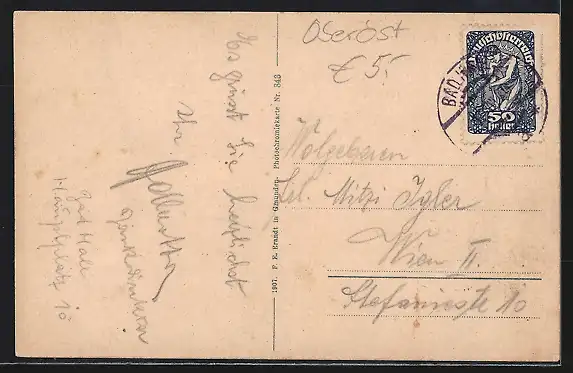 Oberöst
€ 5.-
Deutschösterreich
50
heller
BAD HALL
Es grüsst Sie herzlichst
Ihr
Bad Hall
Hauptplatz 10
1907. F. E. Brandt in Gmunden. Photochromiekarte Nr. 343
Wolgeboren
Frl. Mitzi Igler
Wien II.
Stefaniestr 10